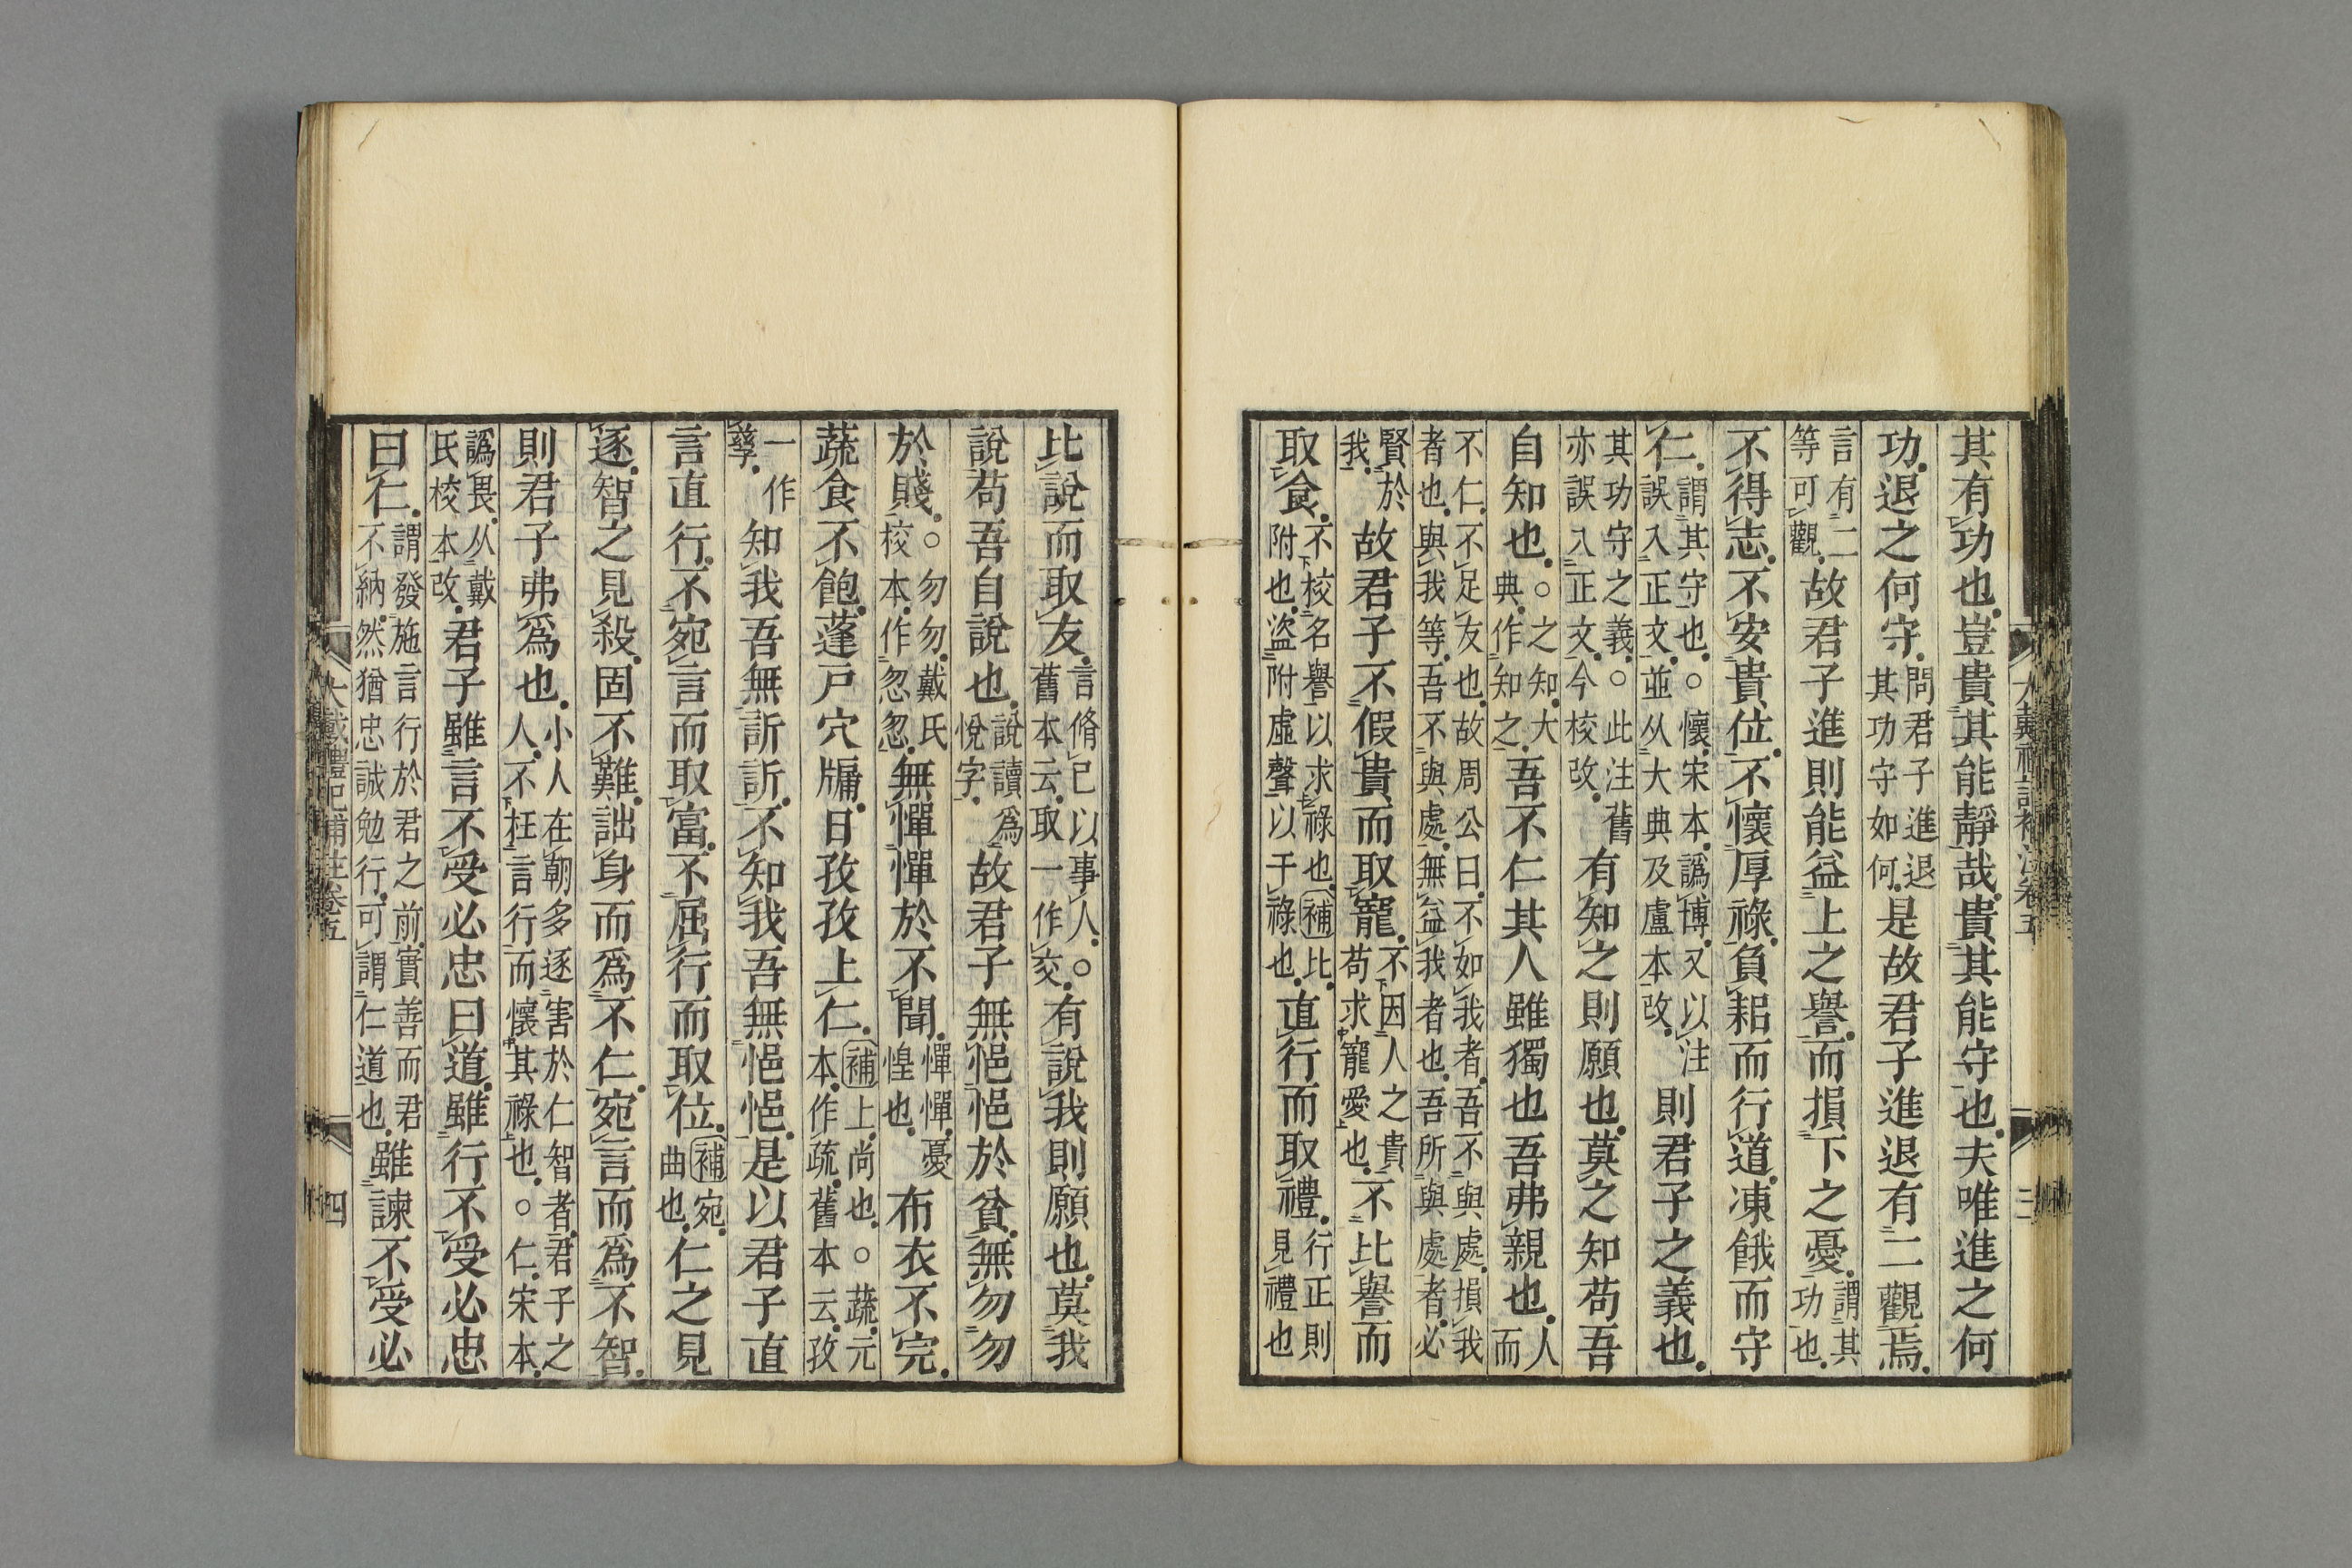 其有功也豈貴其能靜哉貴其能守也夫唯進之何
功退之何守問君子進退其功守如何是故君子進退有二觀焉
言有二等可觀故君子進則能益上之譽而損下之憂謂其功也
不得志不安貴位不懷厚祿負耜而行道凍餓而守
仁謂其守也○懷宋本譌博又以注誤入正文並从大典及盧本改則君子之義也
其功守之義○此注舊亦誤入正文今校改有知之則願也莫之知苟吾
自知也○之知大典作知之吾不仁其人雖獨也吾弗親也人而
不仁不足友也故周公曰不如我者吾不與處損我者也與我等吾不與處無益我者也吾所與處者必
賢於我故君子不假貴而取寵不因人之貴苟求寵愛也不比譽而
取食不校名譽以求祿也補比附也盜附虛聲以干祿也直行而取禮行正則見禮也
大戴禮記補注卷五
三
比說而取友言脩己以事人○舊本云取一作交有說我則願也莫我
說苟吾自說也說讀爲悅字故君子無悒悒於貧無勿勿
於賤○勿勿戴氏校本作忽忽無憚憚於不聞憚憚憂惶也布衣不完
蔬食不飽蓬戶穴牖日孜孜上仁補上尚也○蔬元本作疏舊本云孜
一作孳知我吾無訢訢不知我吾無悒悒是以君子直
言直行不宛言而取富不屈行而取位補宛曲也仁之見
逐智之見殺固不難詘身而爲不仁宛言而爲不智
則君子弗爲也小人在朝多逐害於仁智者君子之人不枉言行而懷其祿也○仁宋本
譌畏从戴氏校本改君子雖言不受必忠曰道雖行不受必忠
曰仁謂發施言行於君之前實善而君不納然猶忠誠勉行可謂仁道也雖諫不受必
大戴禮記補注卷五
四